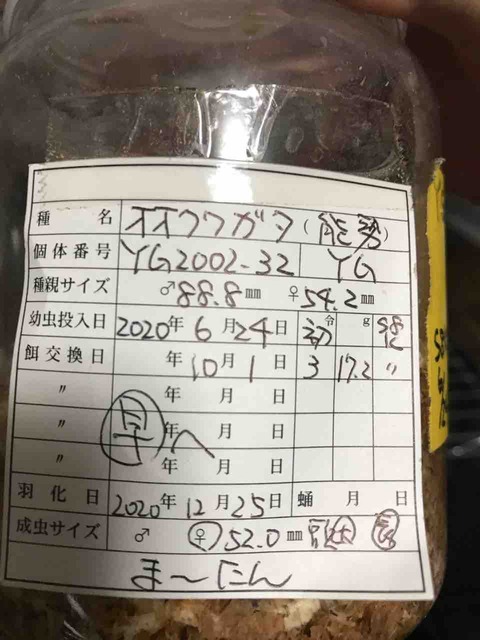 種名 オオクワガタ (能勢)
個体番号 YG2002-32 YG
種親サイズ ♂88.8mm ♀54.2mm
幼虫投入日 2020年6月24日 初令 g
餌交換日 年10月1日 3 17.2 〃
〃 年 月 日
〃 早へ 年 月 日
〃 年 月 日
羽化日 2020年12月25日 蛹 月 日
成虫サイズ ♂ ♀52.0mm
まーにん